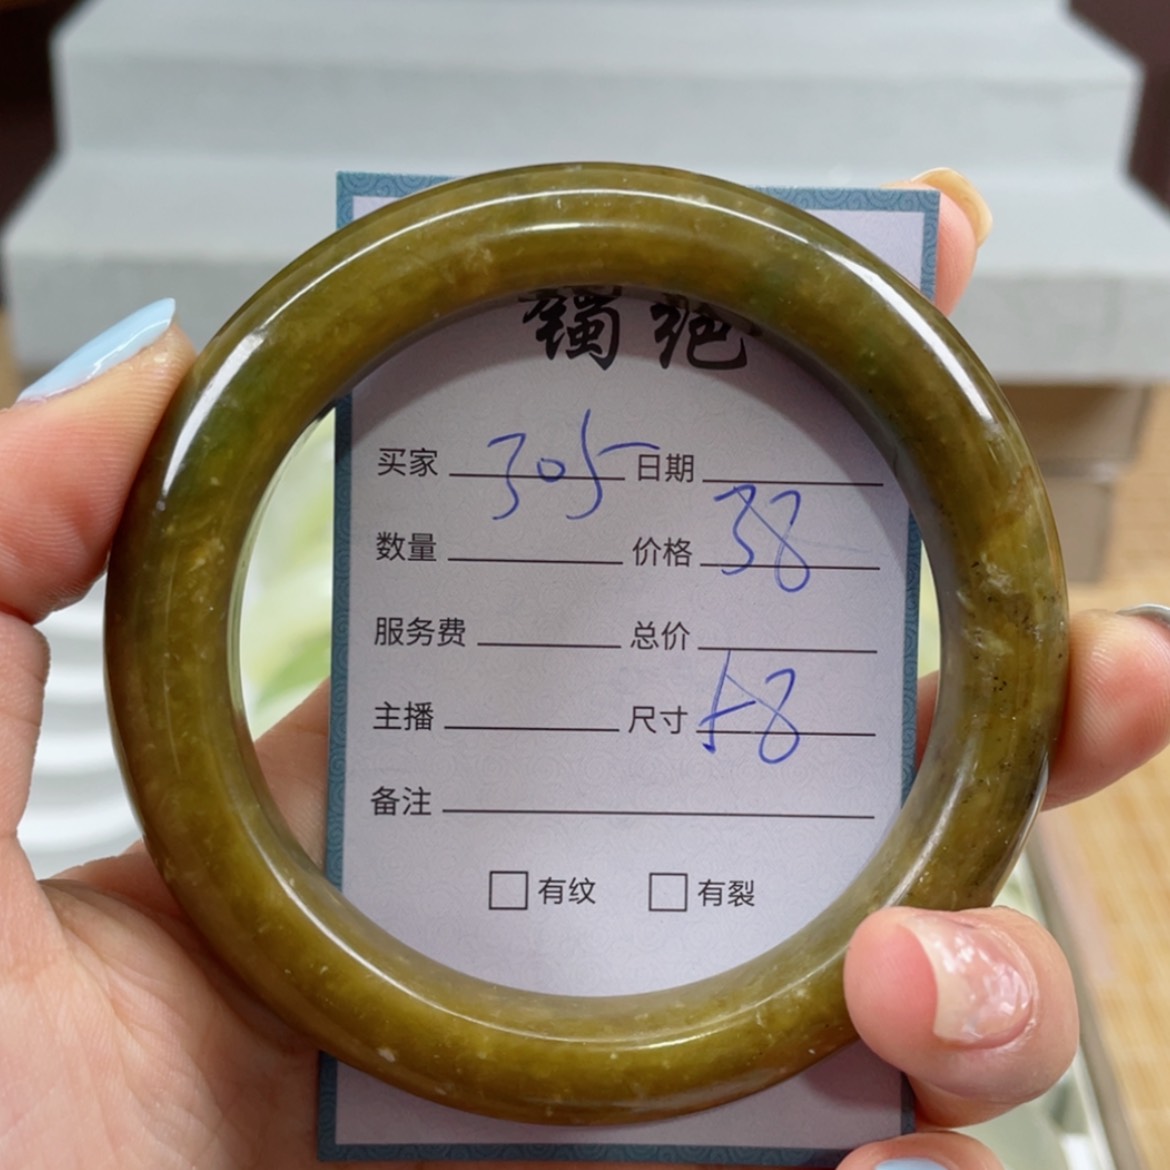 镯绝
买家 305 日期
数量 价格 38
服务费 总价
主播 尺寸 58
备注
有纹 有裂